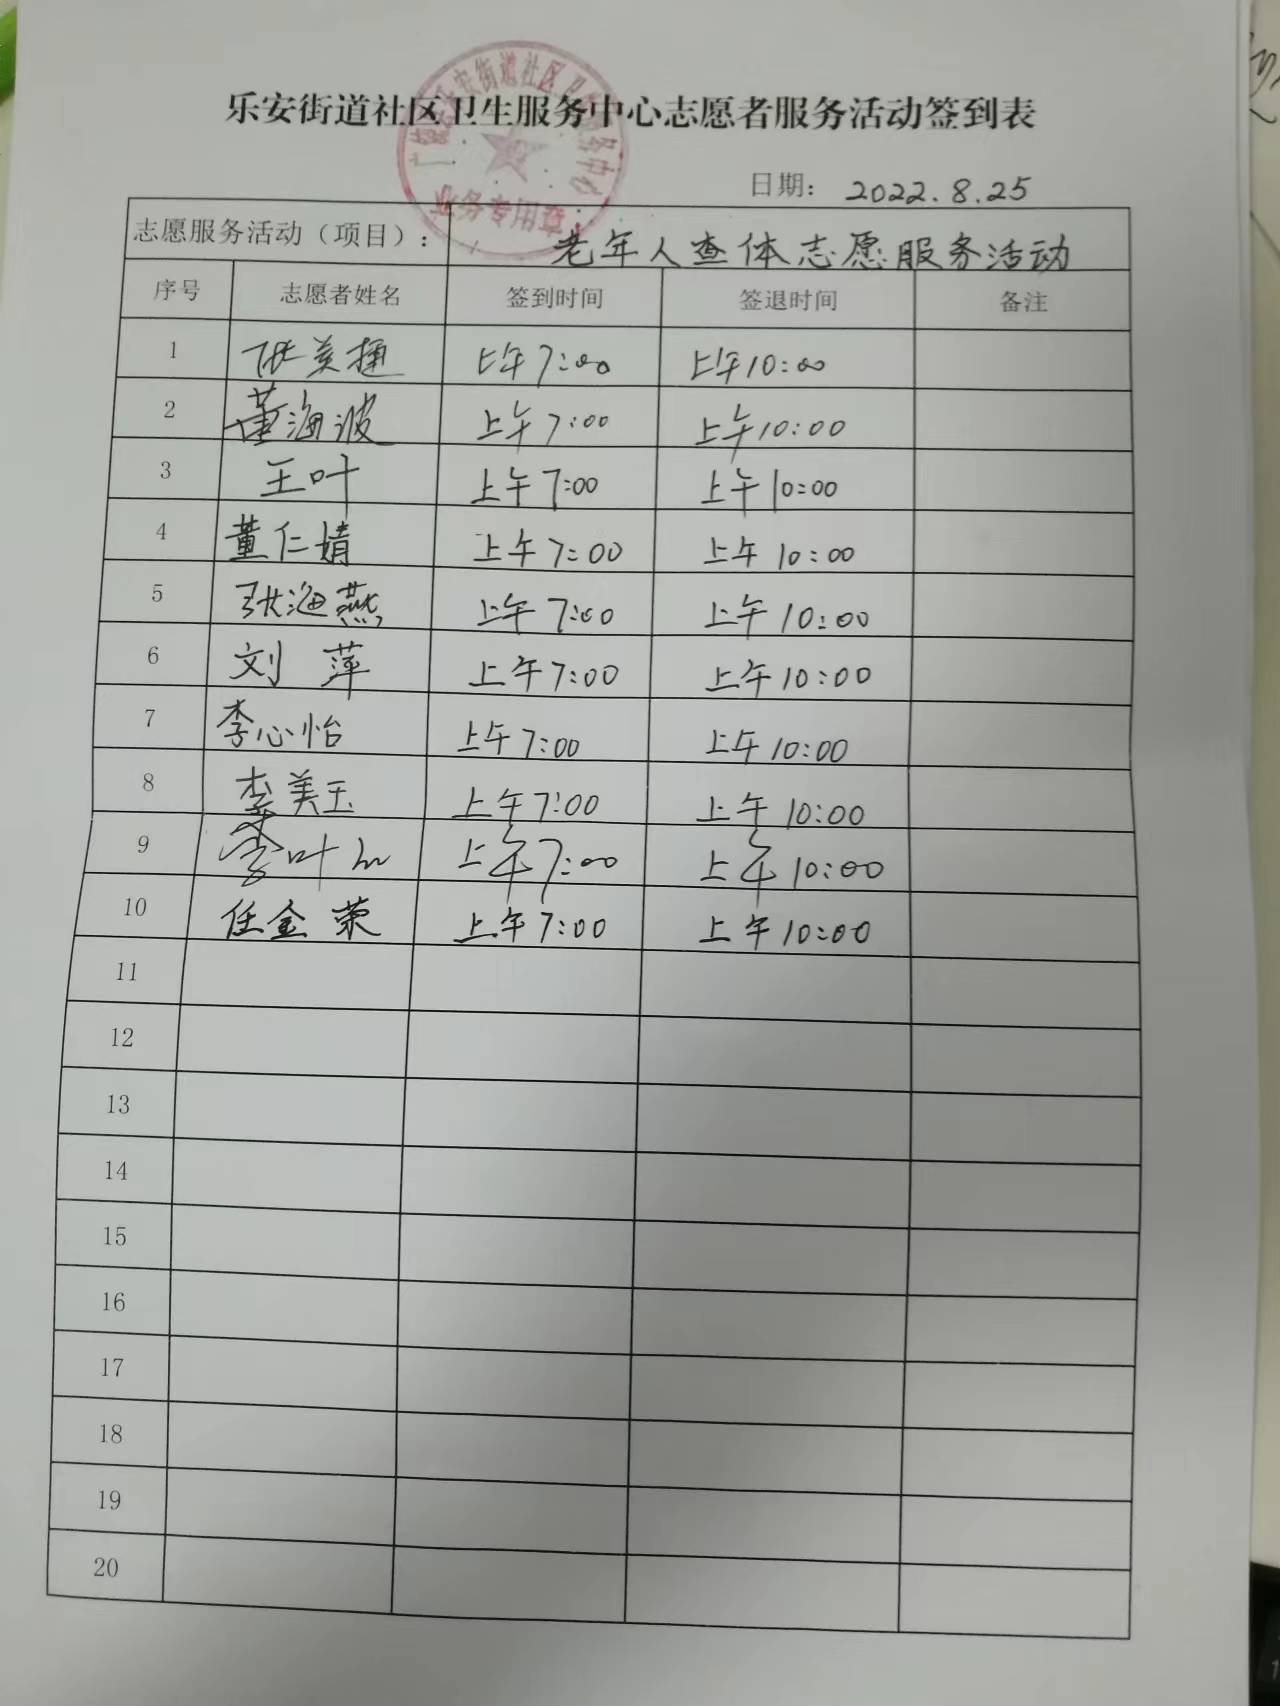 乐安街道社区卫生服务中心志愿者服务活动签到表
日期： 2022.8.25
志愿服务活动（项目）： 老年人查体志愿服务活动
序号 志愿者姓名 签到时间 签退时间 备注
1 张美 上午7:00 上午10:00
2 董海波 上午7:00 上午10:00
3 王叶 上午7:00 上午10:00
4 董仁婧 上午7:00 上午10:00
5 张海燕 上午7:00 上午10:00
6 刘萍 上午7:00 上午10:00
7 李心怡 上午7:00 上午10:00
8 李美玉 上午7:00 上午10:00
9 李叶 上午7:00 上午10:00
10 任金荣 上午7:00 上午10:00
11
12
13
14
15
16
17
18
19
20
业务专用章